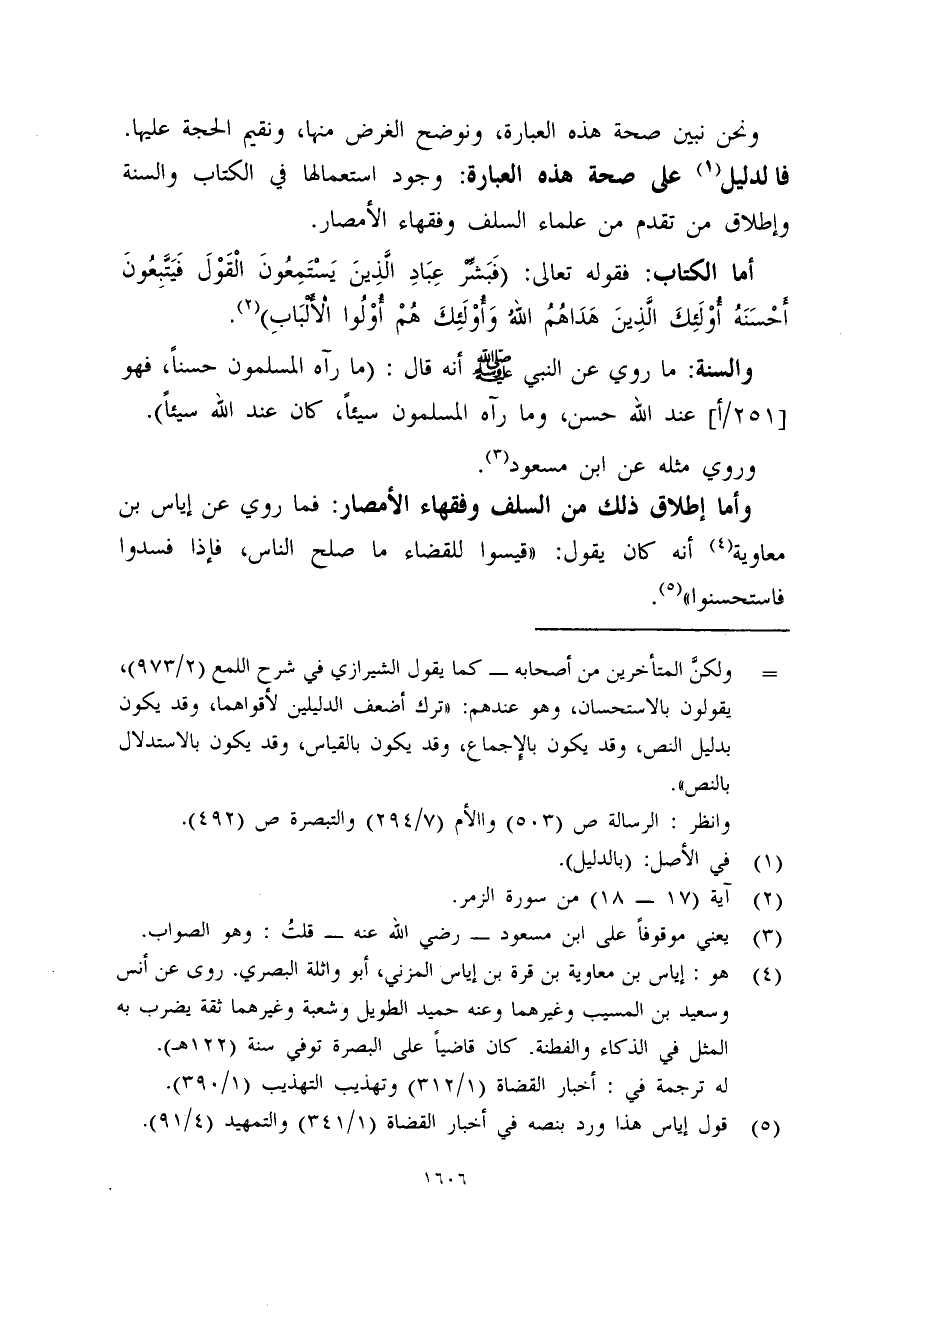 ونحن نبين صحة هذه العبارة، ونوضح الغرض منها، ونقيم الحجة عليها.
فالدليل(١) على صحة هذه العبارة: وجود استعمالها في الكتاب والسنة
وإطلاق من تقدم من علماء السلف وفقهاء الأمصار.
أما الكتاب: فقوله تعالى: (فَبَشِّرْ عِبَادِ الَّذِينَ يَسْتَمِعُونَ الْقَوْلَ فَيَتَّبِعُونَ
أَحْسَنَهُ أُوْلَئِكَ الَّذِينَ هَدَاهُمُ اللَّهُ وَأُوْلَئِكَ هُمْ أُوْلُوا الْأَلْبَابِ)(٢).
والسنة: ما روي عن النبي ﷺ أنه قال : (ما رآه المسلمون حسناً، فهو
[٢٥١/أ] عند الله حسن، وما رآه المسلمون سيئاً، كان عند الله سيئاً).
وروي مثله عن ابن مسعود(٣).
وأما إطلاق ذلك من السلف وفقهاء الأمصار: فما روي عن إياس بن
معاوية(٤) أنه كان يقول: «قيسوا للقضاء ما صلح الناس، فإذا فسدوا
فاستحسنوا»(٥).
= ولكنَّ المتأخرين من أصحابه ــ كما يقول الشيرازي في شرح اللمع (٩٧٣/٢)،
يقولون بالاستحسان، وهو عندهم: «ترك أضعف الدليلين لأقواهما، وقد يكون
بدليل النص، وقد يكون بالإجماع، وقد يكون بالقياس، وقد يكون بالاستدلال
بالنص».
وانظر : الرسالة ص (٥٠٣) واالأم (٢٩٤/٧) والتبصرة ص (٤٩٢).
(١) في الأصل: (بالدليل).
(٢) آية (١٧ ــ ١٨) من سورة الزمر.
(٣) يعني موقوفاً على ابن مسعود ــ رضي الله عنه ــ قلتُ : وهو الصواب.
(٤) هو : إياس بن معاوية بن قرة بن إياس المزني، أبو واثلة البصري. روى عن أنس
وسعيد بن المسيب وغيرهما وعنه حميد الطويل وشعبة وغيرهما ثقة يضرب به
المثل في الذكاء والفطنة. كان قاضياً على البصرة توفي سنة (١٢٢هـ).
له ترجمة في : أخبار القضاة (٣١٢/١) وتهذيب التهذيب (٣٩٠/١).
(٥) قول إياس هذا ورد بنصه في أخبار القضاة (٣٤١/١) والتمهيد (٩١/٤).
١٦٠٦